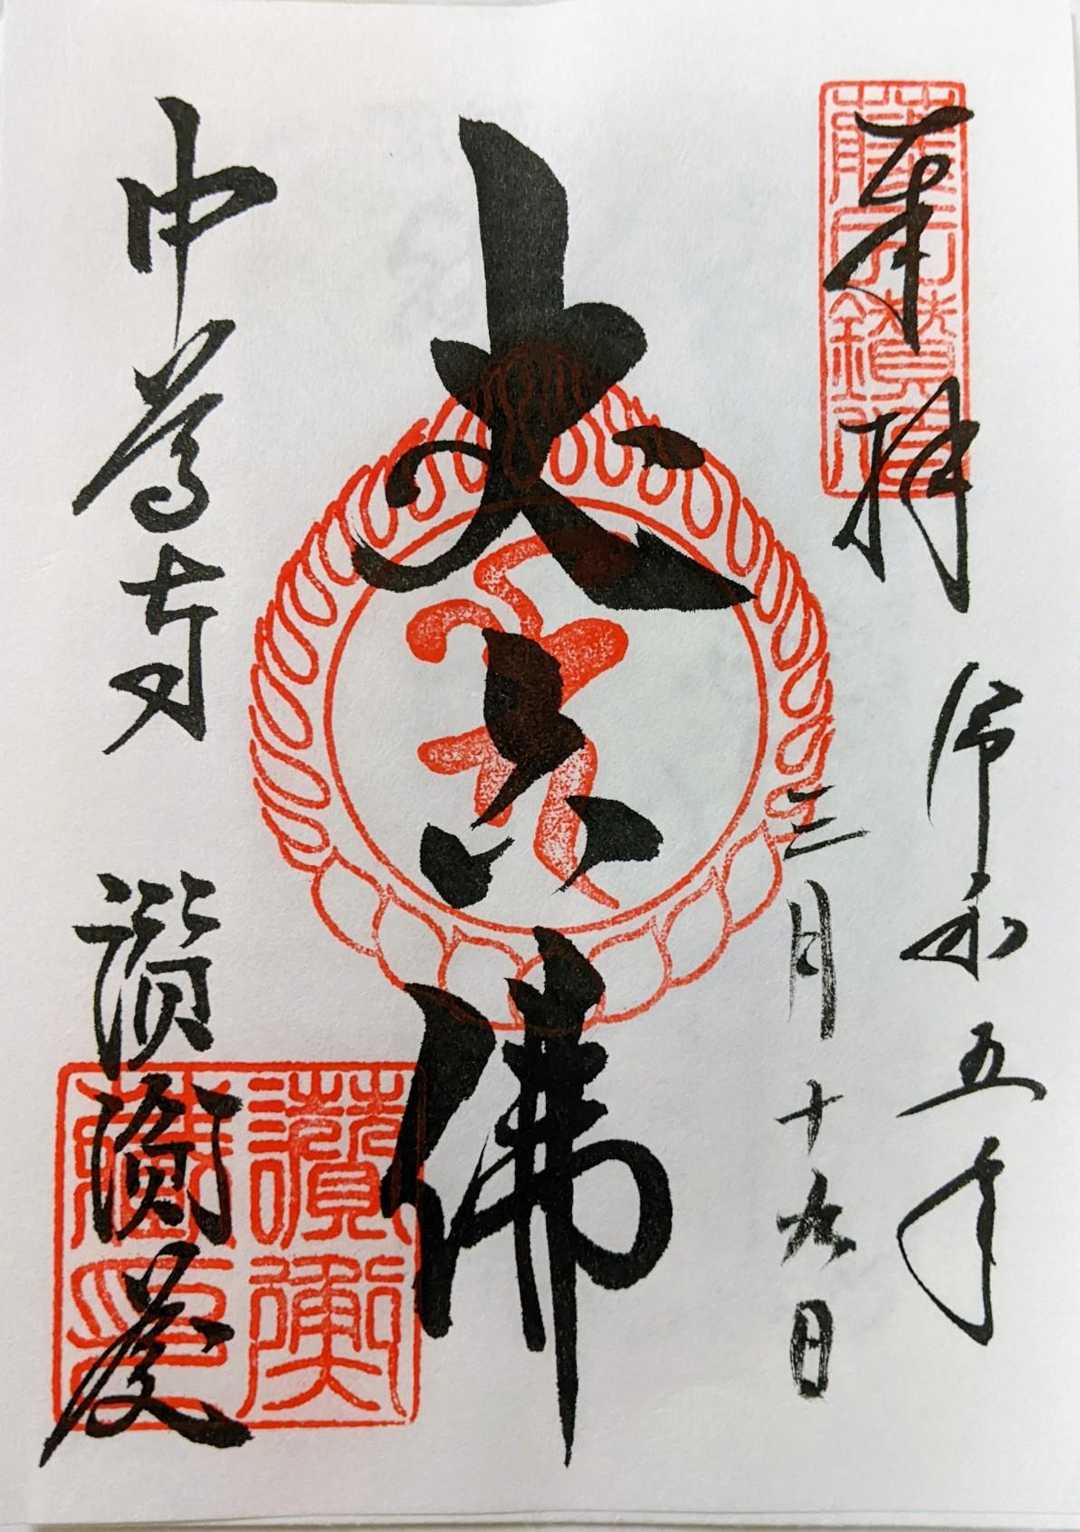 奉拝
令和五年
三月十九日
丈六佛
中尊寺 讃衡蔵
讃衡
蔵印